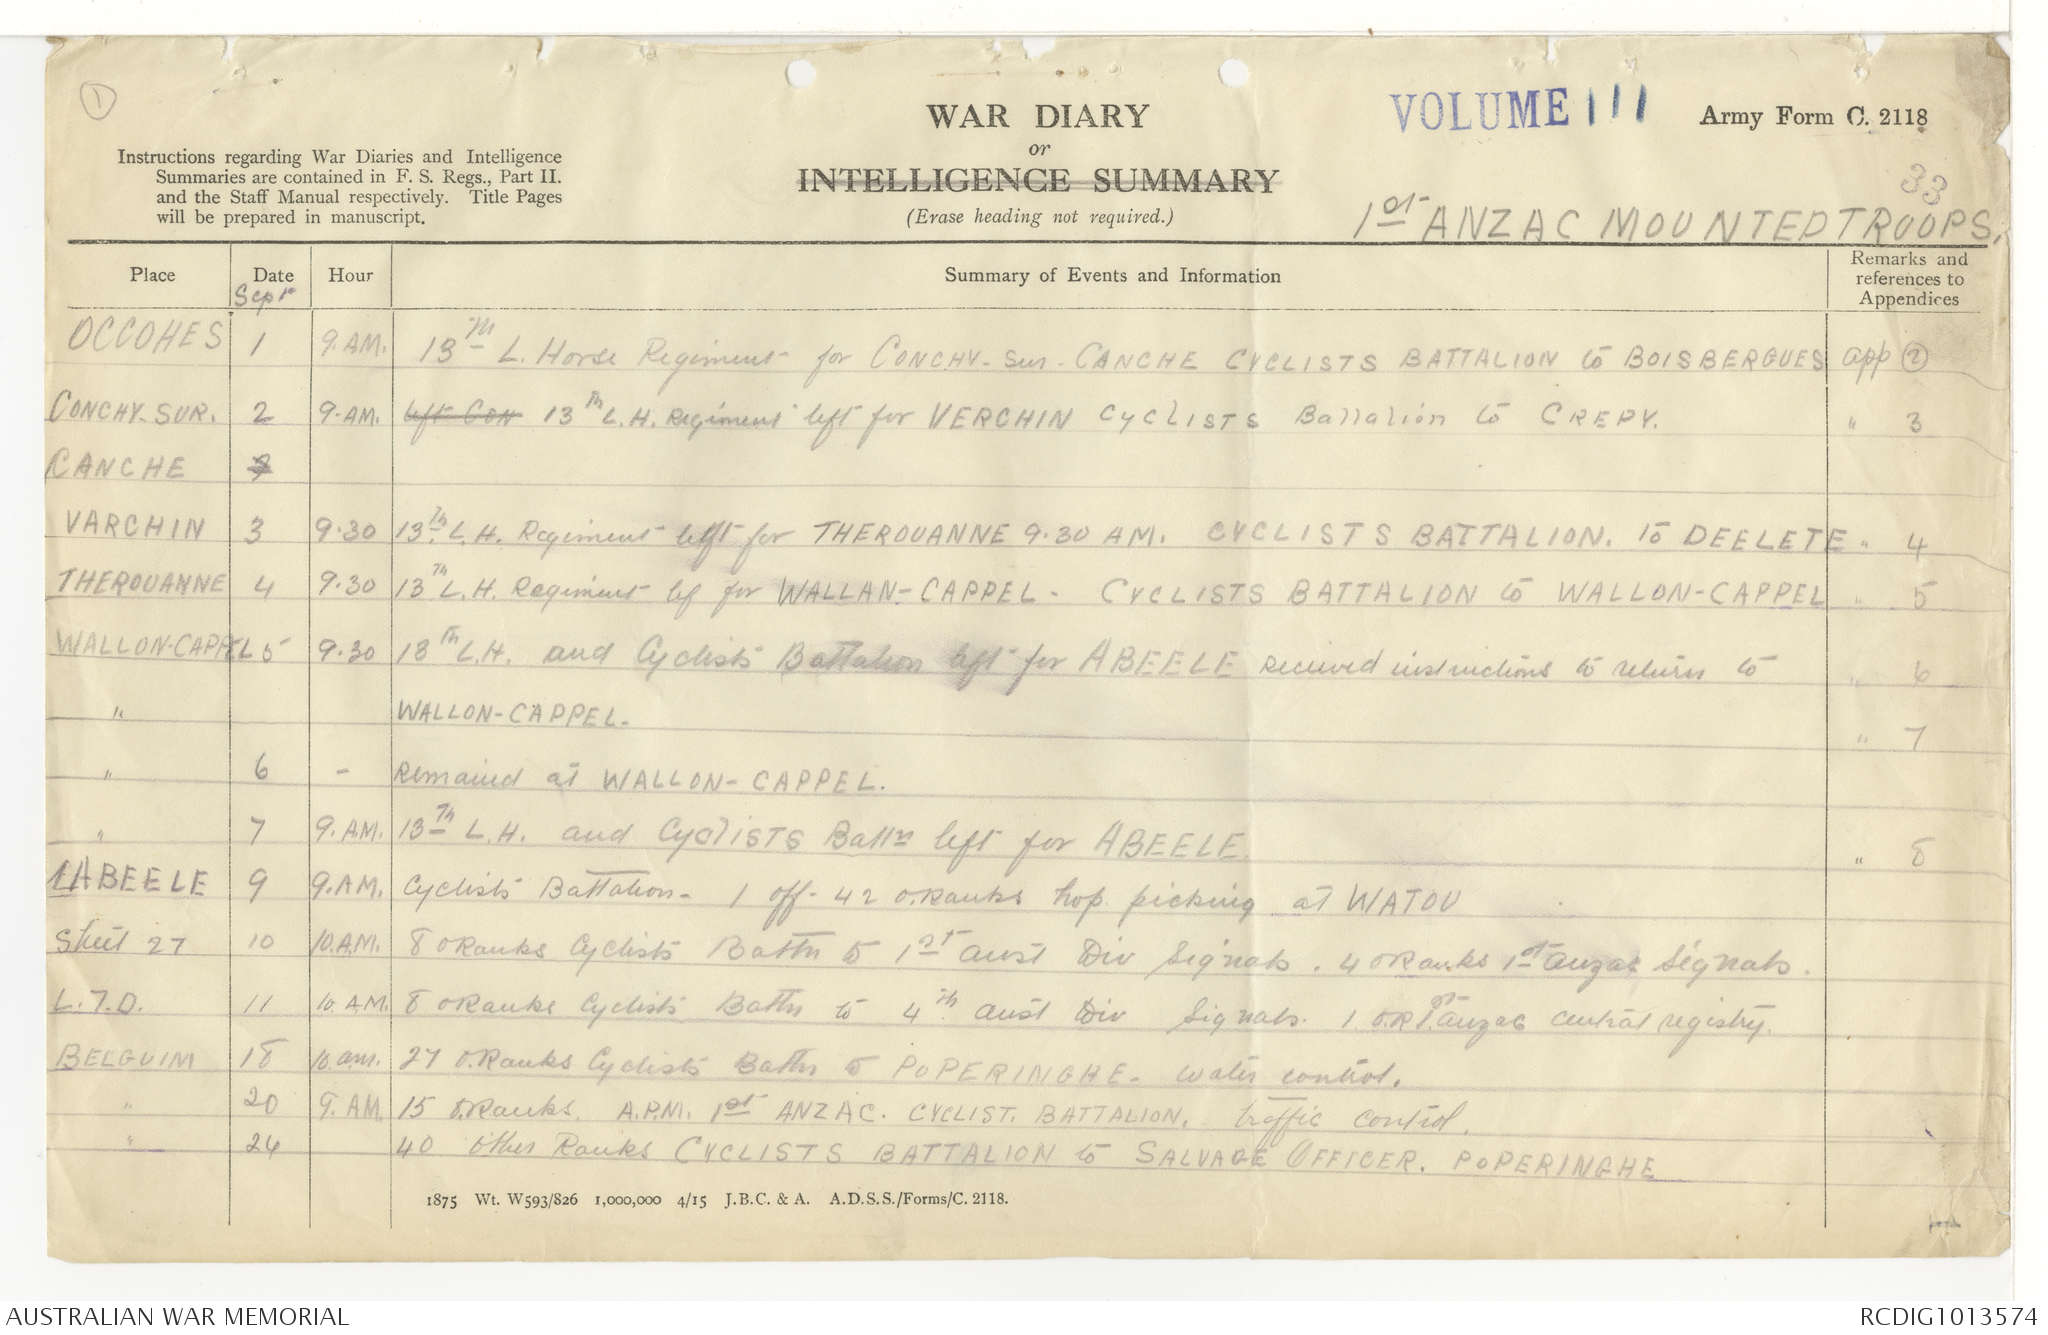 1
WAR DIARY
or
INTELLIGENCE SUMMARY
(Erase heading not required.)
VOLUME 111
Army Form C. 2118
33
Instructions regarding War Diaries and Intelligence
Summaries are contained in F. S. Regs., Part II.
and the Staff Manual respectively. Title Pages
will be prepared in manuscript.
1st ANZAC MOUNTED TROOPS.
Place Date Hour Summary of Events and Information Remarks and references to Appendices
Sept
OCCOHES 1 9.AM. 13th L. Horse Regiment for CONCHY-sur-CANCHE CYCLISTS BATTALION to BOISBERGUES app 2
CONCHY-SUR. 2 9.AM. left CON 13th L.H. Regiment left for VERCHIN CYCLISTS Battalion to CREPY. " 3
CANCHE
VARCHIN 3 9.30 13th L.H. Regiment left for THEROUANNE 9.30 AM. CYCLISTS BATTALION. to DEELETE " 4
THEROUANNE 4 9.30 13th L.H. Regiment lef for WALLAN-CAPPEL - CYCLISTS BATTALION to WALLON-CAPPEL " 5
WALLON-CAPPEL 5 9.30 13th L.H. and Cyclists Battalion left for ABEELE received instructions to return to " 6
" WALLON-CAPPEL. " 7
" 6 - Remained at WALLON-CAPPEL.
" 7 9.AM. 13th L.H. and CyclISTS Battn left for ABEELE " 8
ABEELE 9 9.AM. Cyclists Battalion - 1 off - 42 O.Ranks hop picking at WATOU
Sheet 27 10 10.AM. 8 ORanks Cyclists Battn to 1st Aust Div Signals. 4 ORanks 1st Anzac Signals.
L.7.D. 11 10.AM. 8 ORanks Cyclists Battn to 4th Aust Div Signals. 1 O.R 1st Anzac central registry.
BELGUIM 18 10.am. 27 O.Ranks Cyclists Battn to POPERINGHE - water control.
" 20 9.AM. 15 O.Ranks. A.P.M. 1st ANZAC. CYCLIST. BATTALION. traffic control.
" 24 40 other Ranks CYCLISTS BATTALION to SALVAGE OFFICER. POPERINGHE
1875 Wt. W593/826 1,000,000 4/15 J.B.C. & A. A.D.S.S./Forms/C. 2118.
AUSTRALIAN WAR MEMORIAL RCDIG1013574